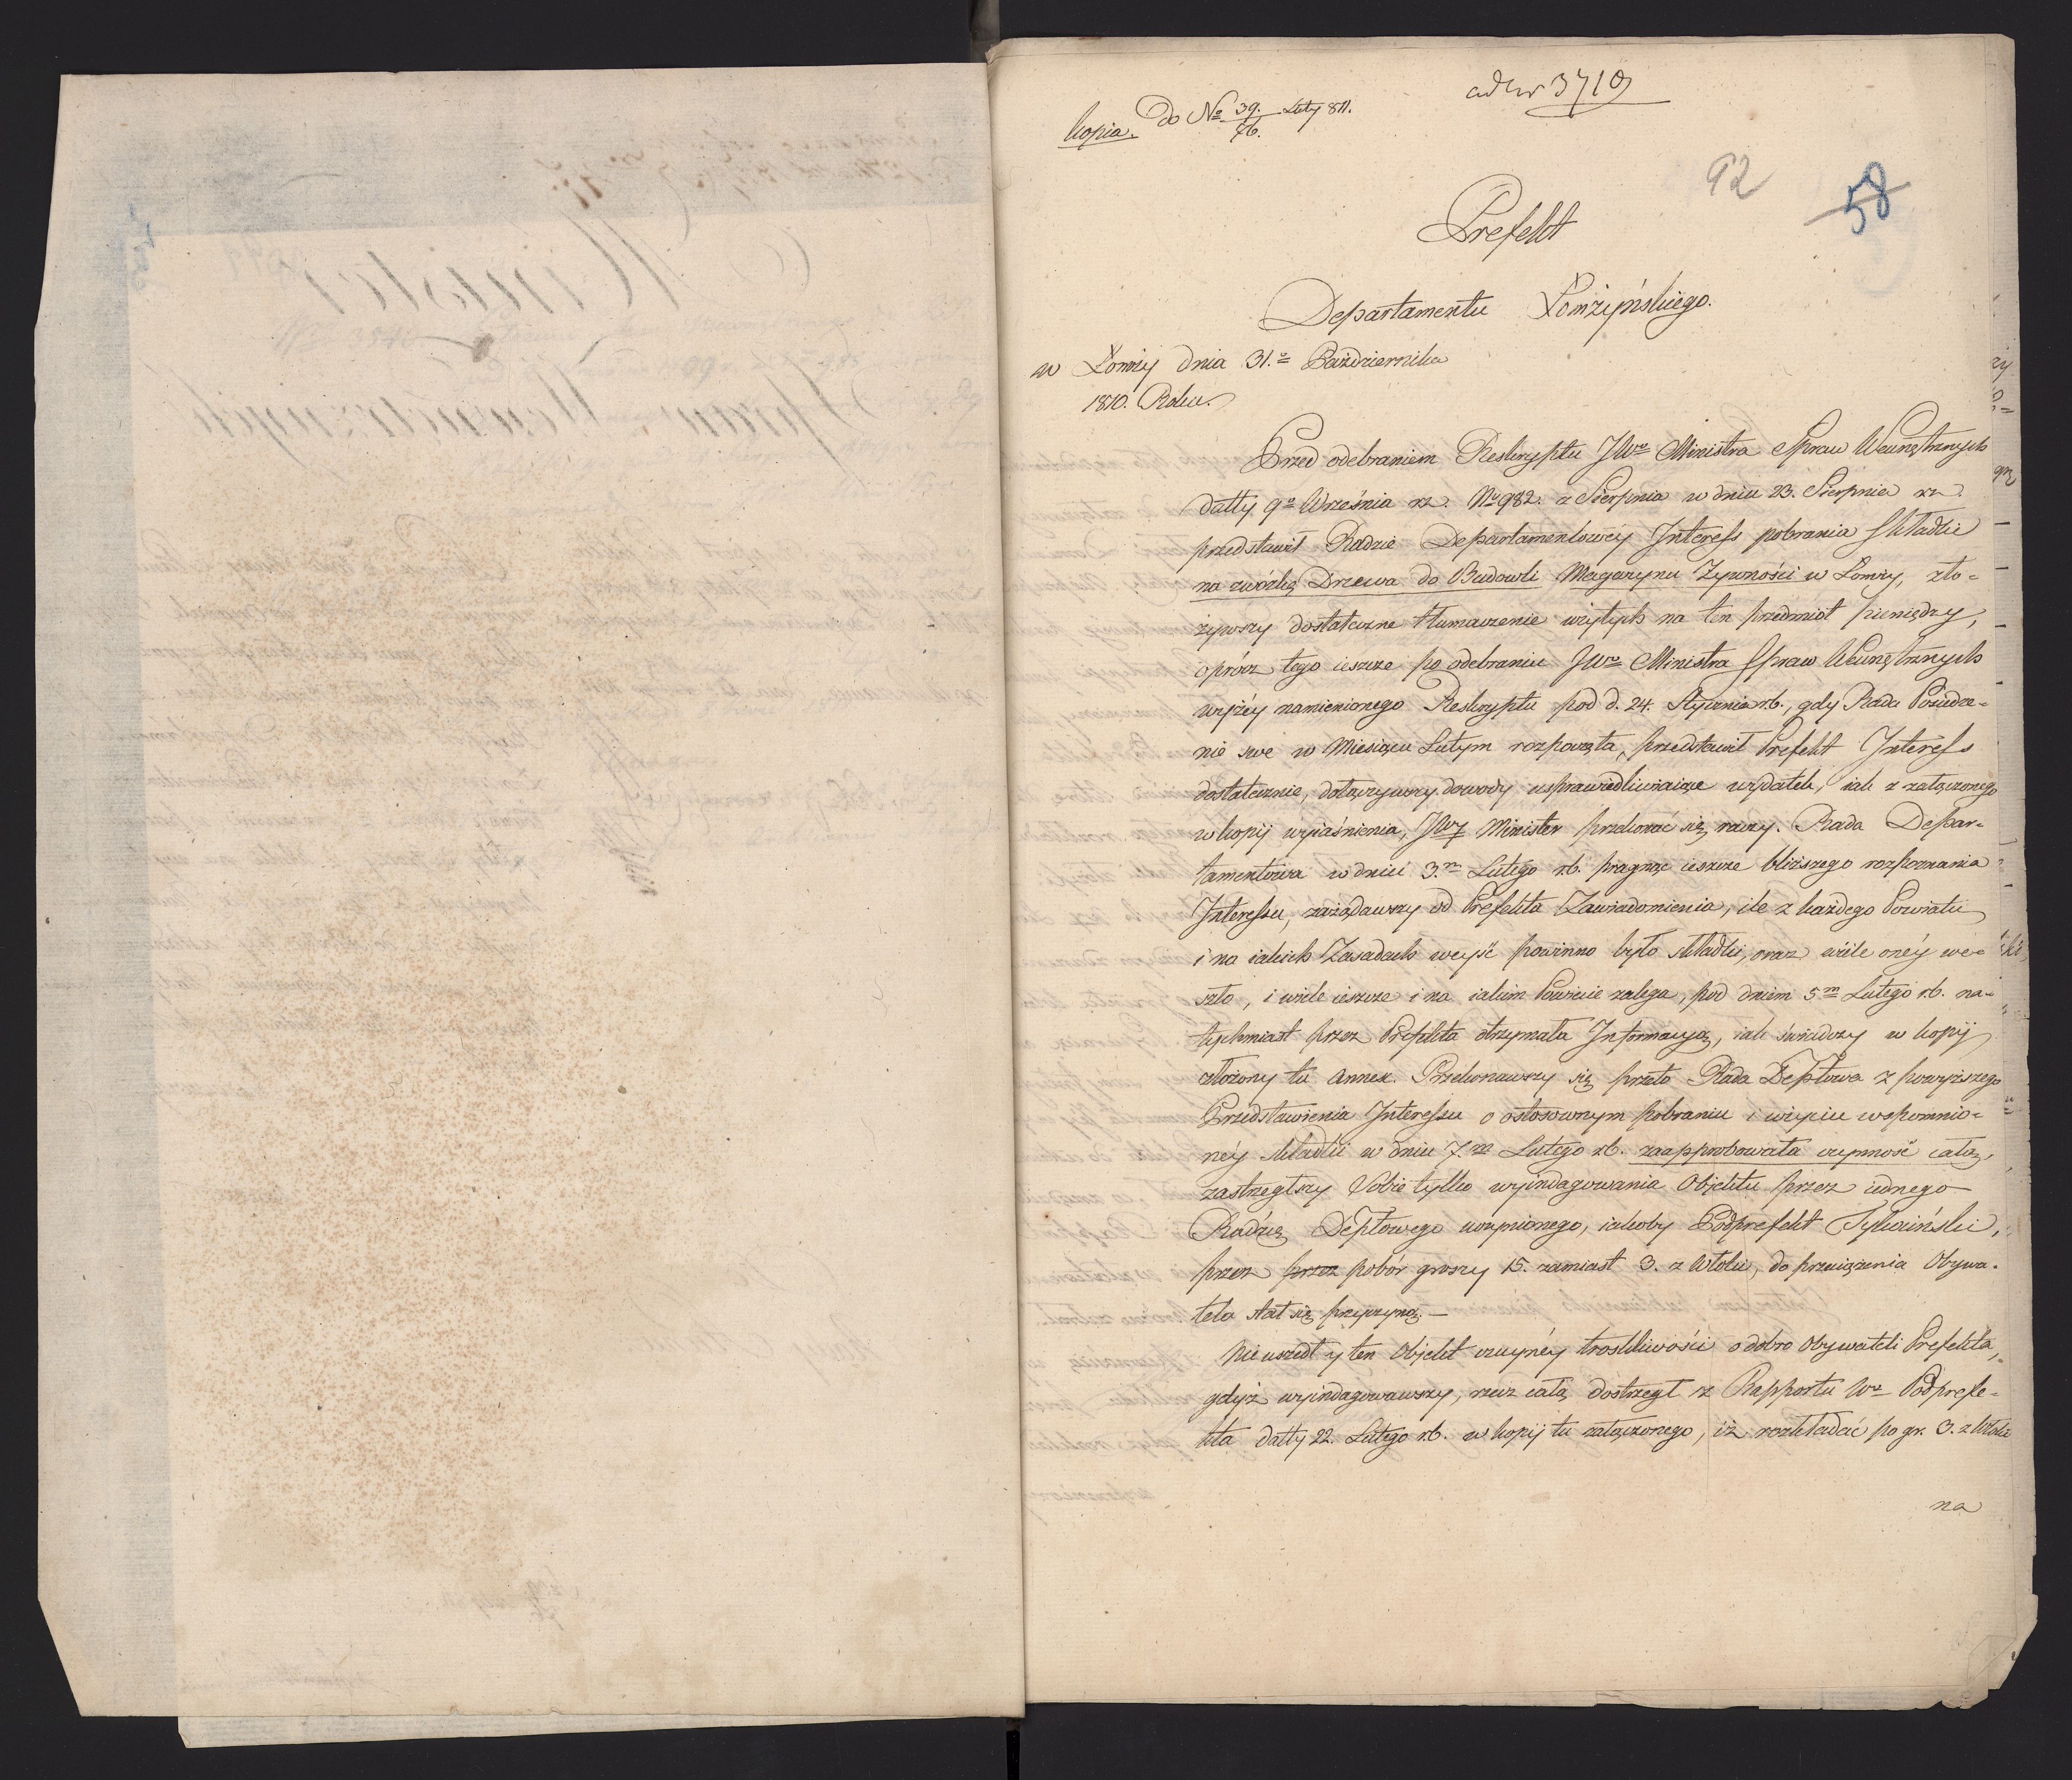 ad Nr 3719
Kopia. Do No 39./76. Luty 811.
92
58
Prefekt
Departamentu Łomżyńskiego.
w Łomży dnia 31.o Października
1810. Roku.
Przed odebraniem Reskryptu JWo Ministra Spraw Wewnętrznych
datty 9o Września rz. No 982. a Sierpnia w dniu 23. Sierpnia rz.
przedstawił Radzie Departamentowey Interess pobrania Składki
na zwózkę Drzewa do Budowli Magazynu Zywności w Łomży, zło-
żywszy dostateczne tłumaczenie użytych na ten przedmiot pieniędzy,
oprócz tego ieszcze po odebraniu JWo Ministra Spraw Wewnętrznych
wyżéy namienionego Reskryptu pod d. 24. Stycznia r.b., gdy Rada Posiedze-
nie swe w Miesiącu Lutym rozpoczęła, przedstawił Prefekt Interess
dostatecznie, dołączywszy dowody usprawiedliwiaiące wydatek, iak z załączonego
w kopij wyiaśnienia, JWy Minister przekonać się raczy. Rada Depar-
tamentowa w dniu 3.m Lutego r.b. pragnąc ieszcze bliższego rozpoznania
Interessu, zażądawszy od Prefekta Zawiadomienia, ile z każdego Powiatu
i na iakich Zasadach weyść powinno było składki, oraz wiele onéy we-
szło, i wiele ieszcze i na iakim Powiecie zalega, pod dniem 5m Lutego r.b. na-
tychmiast przez Prefekta otrzymała Informacyą, iak świadczy w kopij
złożony tu Annex. Przekonawszy się przeto Rada Deptowa z powyższego
Przedstawienia Interessu o ostosownym pobraniu i użyciu wspomnio-
néy składki w dniu 7.m Lutego r.b. zaapprobowała czynność całą,
zastrzegłszy Sobie tylko wyindagowania Objektu przez iednego
Radzcę Deptowego uczynionego, iakoby Podprefekt Tykociński,
przez przez pobór groszy 15. zamiast 3. z Włoki, do przeciążenia Obywa-
tela stał się przyczyną.—
Nie uszedł y ten Objekt czuynéy troskliwości o dobro Obywateli Prefekta,
gdyż wyindagowawszy, rzecz całą dostrzegł z Rapportu Wo Podprefe-
kta datty 22. Lutego r.b. w kopij tu załączonego, iż rozkładać po gr. 3. z Włoki
na